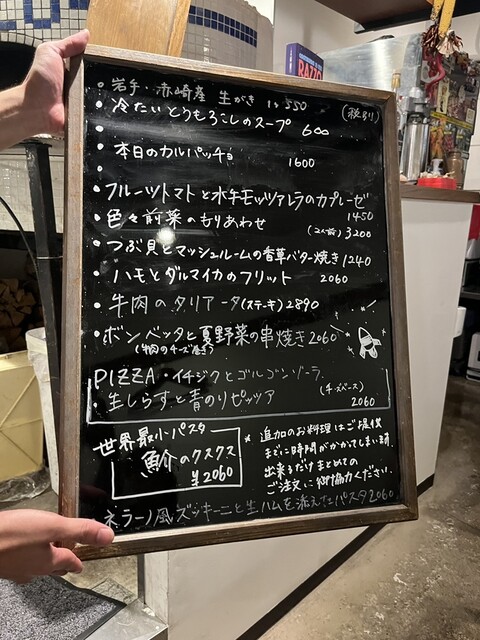 RAZZO
岩手・赤崎産 生がき 1ヶ550
(税別)
・冷たいとうもろこしのスープ 600
・本日のカルパッチョ 1600
・フルーツトマトと水牛モッツァレラのカプレーゼ 1450
・色々前菜のもりあわせ (2人前) 3200
・つぶ貝とマッシュルームの香草バター焼き 1240
・ハモとダルマイカのフリット 2060
・牛肉のタリアータ(ステーキ) 2890
・ボンベッタと夏野菜の串焼き 2060
(牛肉のチーズ巻き)
PIZZA・イチジクとゴルゴンゾーラ
(チーズベース)
・生しらすと青のりピッツァ 2060
世界最小パスタ
魚介のクスクス
¥2060
* 追加のお料理はご提供
までに時間がかかってしまいます。
出来るだけまとめての
ご注文に御協力ください。
ネラーノ風ズッキーニと生ハムを添えたパスタ2060